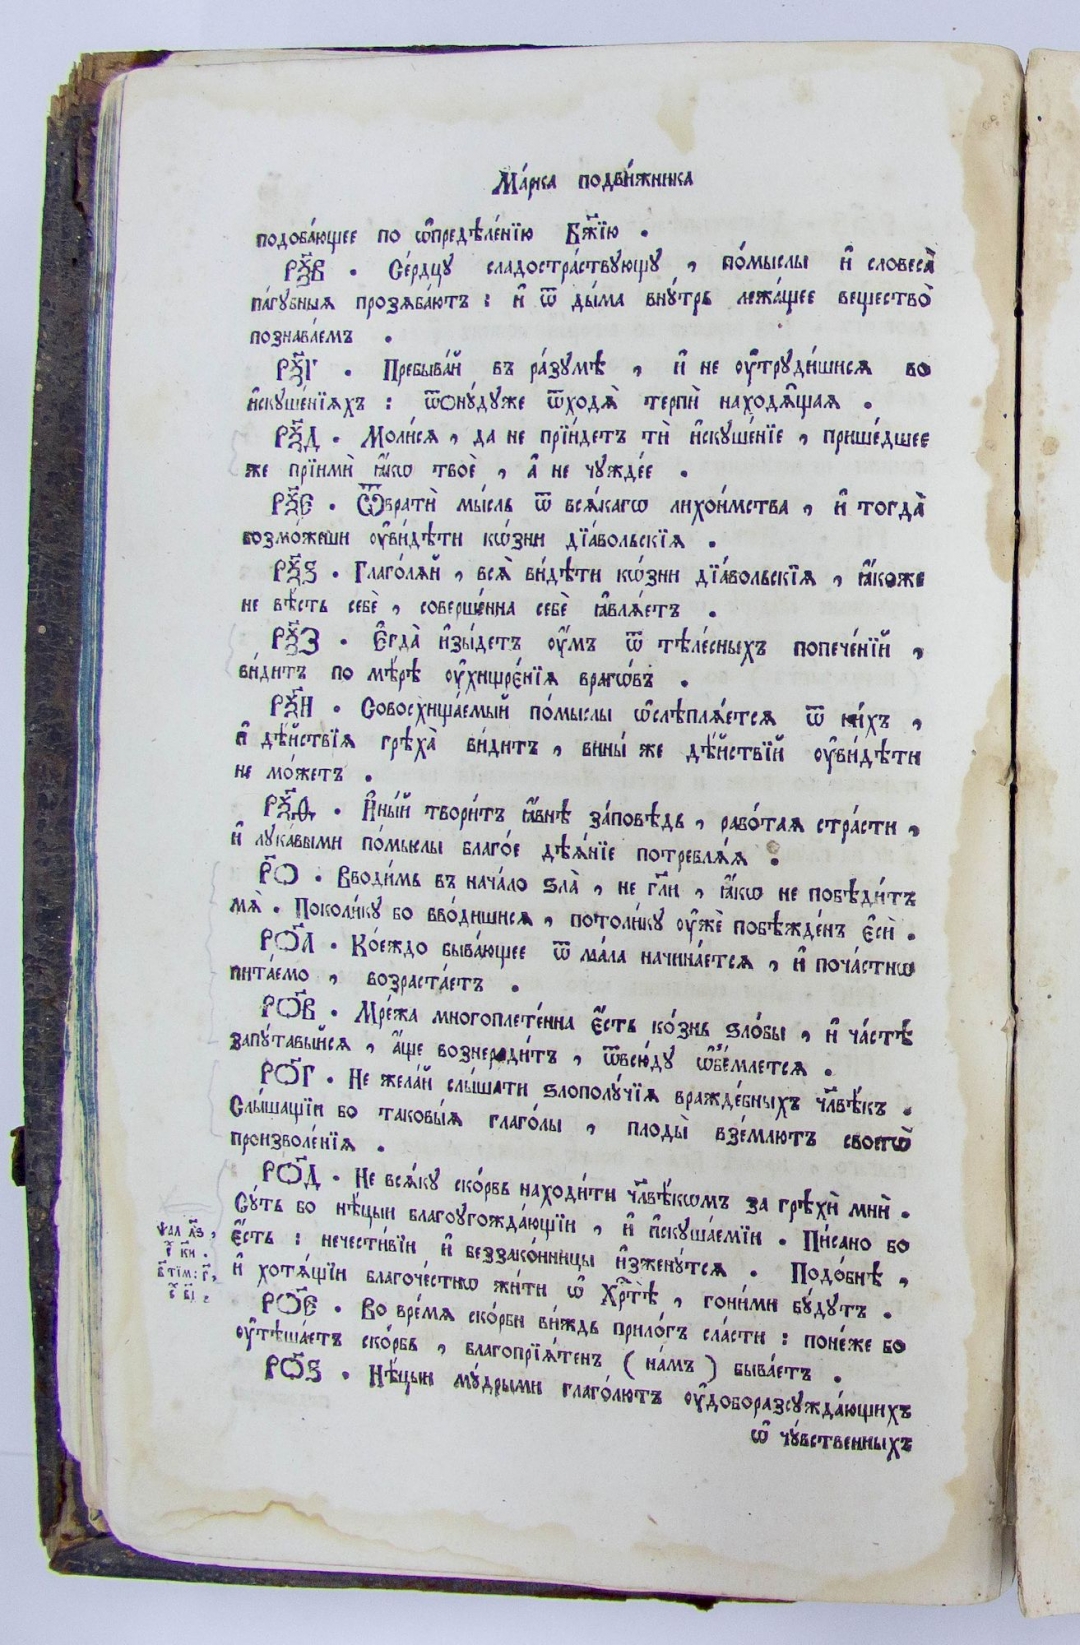 Ма́рка подви́жника
подоба́ющее по ѡ҆предѣле́нїю Бж҃їю .
РѮ҃В . Се́рдцу сладостра́ствующу , по́мыслы и҆ словеса̀
па́губныя прозѧба́ютъ : и҆ ѿ ды́ма вну́трь лежа́щее вещество̀
познава́емъ .
РѮ҃Г . Пребыва́й въ ра́зумѣ , и҆ не ᲂу҆труди́шися во
и҆скуше́нїяхъ : ѿѻну́дуже ѿходѧ̀ терпѝ находѧ҆́щая .
РѮ҃Д . Моли́ся , да не прїи́детъ тѝ и҆скуше́нїе , прише́дшее
же прїимѝ ꙗ҆́кѡ твоѐ , а҆ не чужде́е .
РѮ҃Є . Ѿвратѝ мы́сль ѿ всѧ́кагѡ лихои́мства , и҆ тогда̀
возмо́жеши ᲂу҆ви́дѣти кѡ́зни дїа́вольскїя .
РѮ҃Ѕ . Глаго́ляй , всѧ̀ ви́дѣти кѡ́зни дїа́вольскїя , ꙗ҆́коже
не вѣ́сть себѐ , соверше́нна себѐ ꙗ҆влѧ́етъ .
РѮ҃З . Є҆гда̀ и҆зы́детъ ᲂу҆́мъ ѿ тѣле́сныхъ попече́нїй ,
ви́дитъ по мѣ́рѣ ᲂу҆хищре́нїя врагѡ́въ .
РѮ҃Н . Совосхища́емый по́мыслы ѡ҆слѣплѧ́ется ѿ ни́хъ ,
и҆ дѣ́йствїя грѣха̀ ви́дитъ , вины́ же дѣ́йствїй ᲂу҆ви́дѣти
не мо́жетъ .
РѮ҃Ѳ . И҆ны́й твори́тъ ꙗ҆́внѣ за́повѣдь , рабо́тая стра́сти ,
и҆ лука́выми по́мыслы благо́е дѣѧ́нїе потреблѧ́я .
РО҃ . Вводи́мь въ нача́ло ѕла̀ , не гл҃и , ꙗ҆́кѡ не побѣди́тъ
мѧ̀ . Поколи́ку бо вво́дишися , потоли́ку ᲂу҆жѐ побѣжде́нъ є҆сѝ .
РО҃А . Ко́еждо быва́ющее ѿ ма́ла начина́ется , и҆ поча́стнѡ
пита́емо , возраста́етъ .
РО҃В . Мре́жа многоплете́нна є҆́сть ко́знь ѕло́бы , и҆ ча́стѣ
запу́тавыйся , а҆́ще вознеради́тъ , ѿвсю́ду ѡ҆бе́млется .
РО҃Г . Не жела́й слы́шати ѕлополу́чїя вражде́бныхъ чл҃вѣ́къ .
Слы́шащїи бо таковы́я глаго́лы , плоды̀ взе́млютъ своегѡ̀
произволе́нїя .
РО҃Д . Не всѧ́ку ско́рбь находи́ти чл҃вѣ́кѡмъ за грѣхѝ мнѝ .
Су́ть бо нѣ́цыи благоугожда́ющїи , и҆ и҆скуша́емїи . Пи́сано бо
є҆́сть : нечести́вїи и҆ беззако́нницы и҆зжену́тся . Подо́бнѣ ,
и҆ хотѧ́щїи благоче́стнѡ жи́ти ѡ҆ Хр҃тѣ̀ , гони́ми бу́дутъ .
Ѱал л҃з ,
г҃ к҃и .
в҃ тїм : г҃ ,
г҃ в҃і .
РО҃Є . Во вре́мя ско́рби ви́ждь прило́гъ сла́сти : поне́же бо
ᲂу҆тѣша́етъ ско́рбь , благопрїѧ́тенъ ( на́мъ ) быва́етъ .
РО҃Ѕ . Нѣ́цыи му́дрыми глаго́лютъ ᲂу҆доборазсужда́ющихъ
ѡ҆ чу́вственныхъ